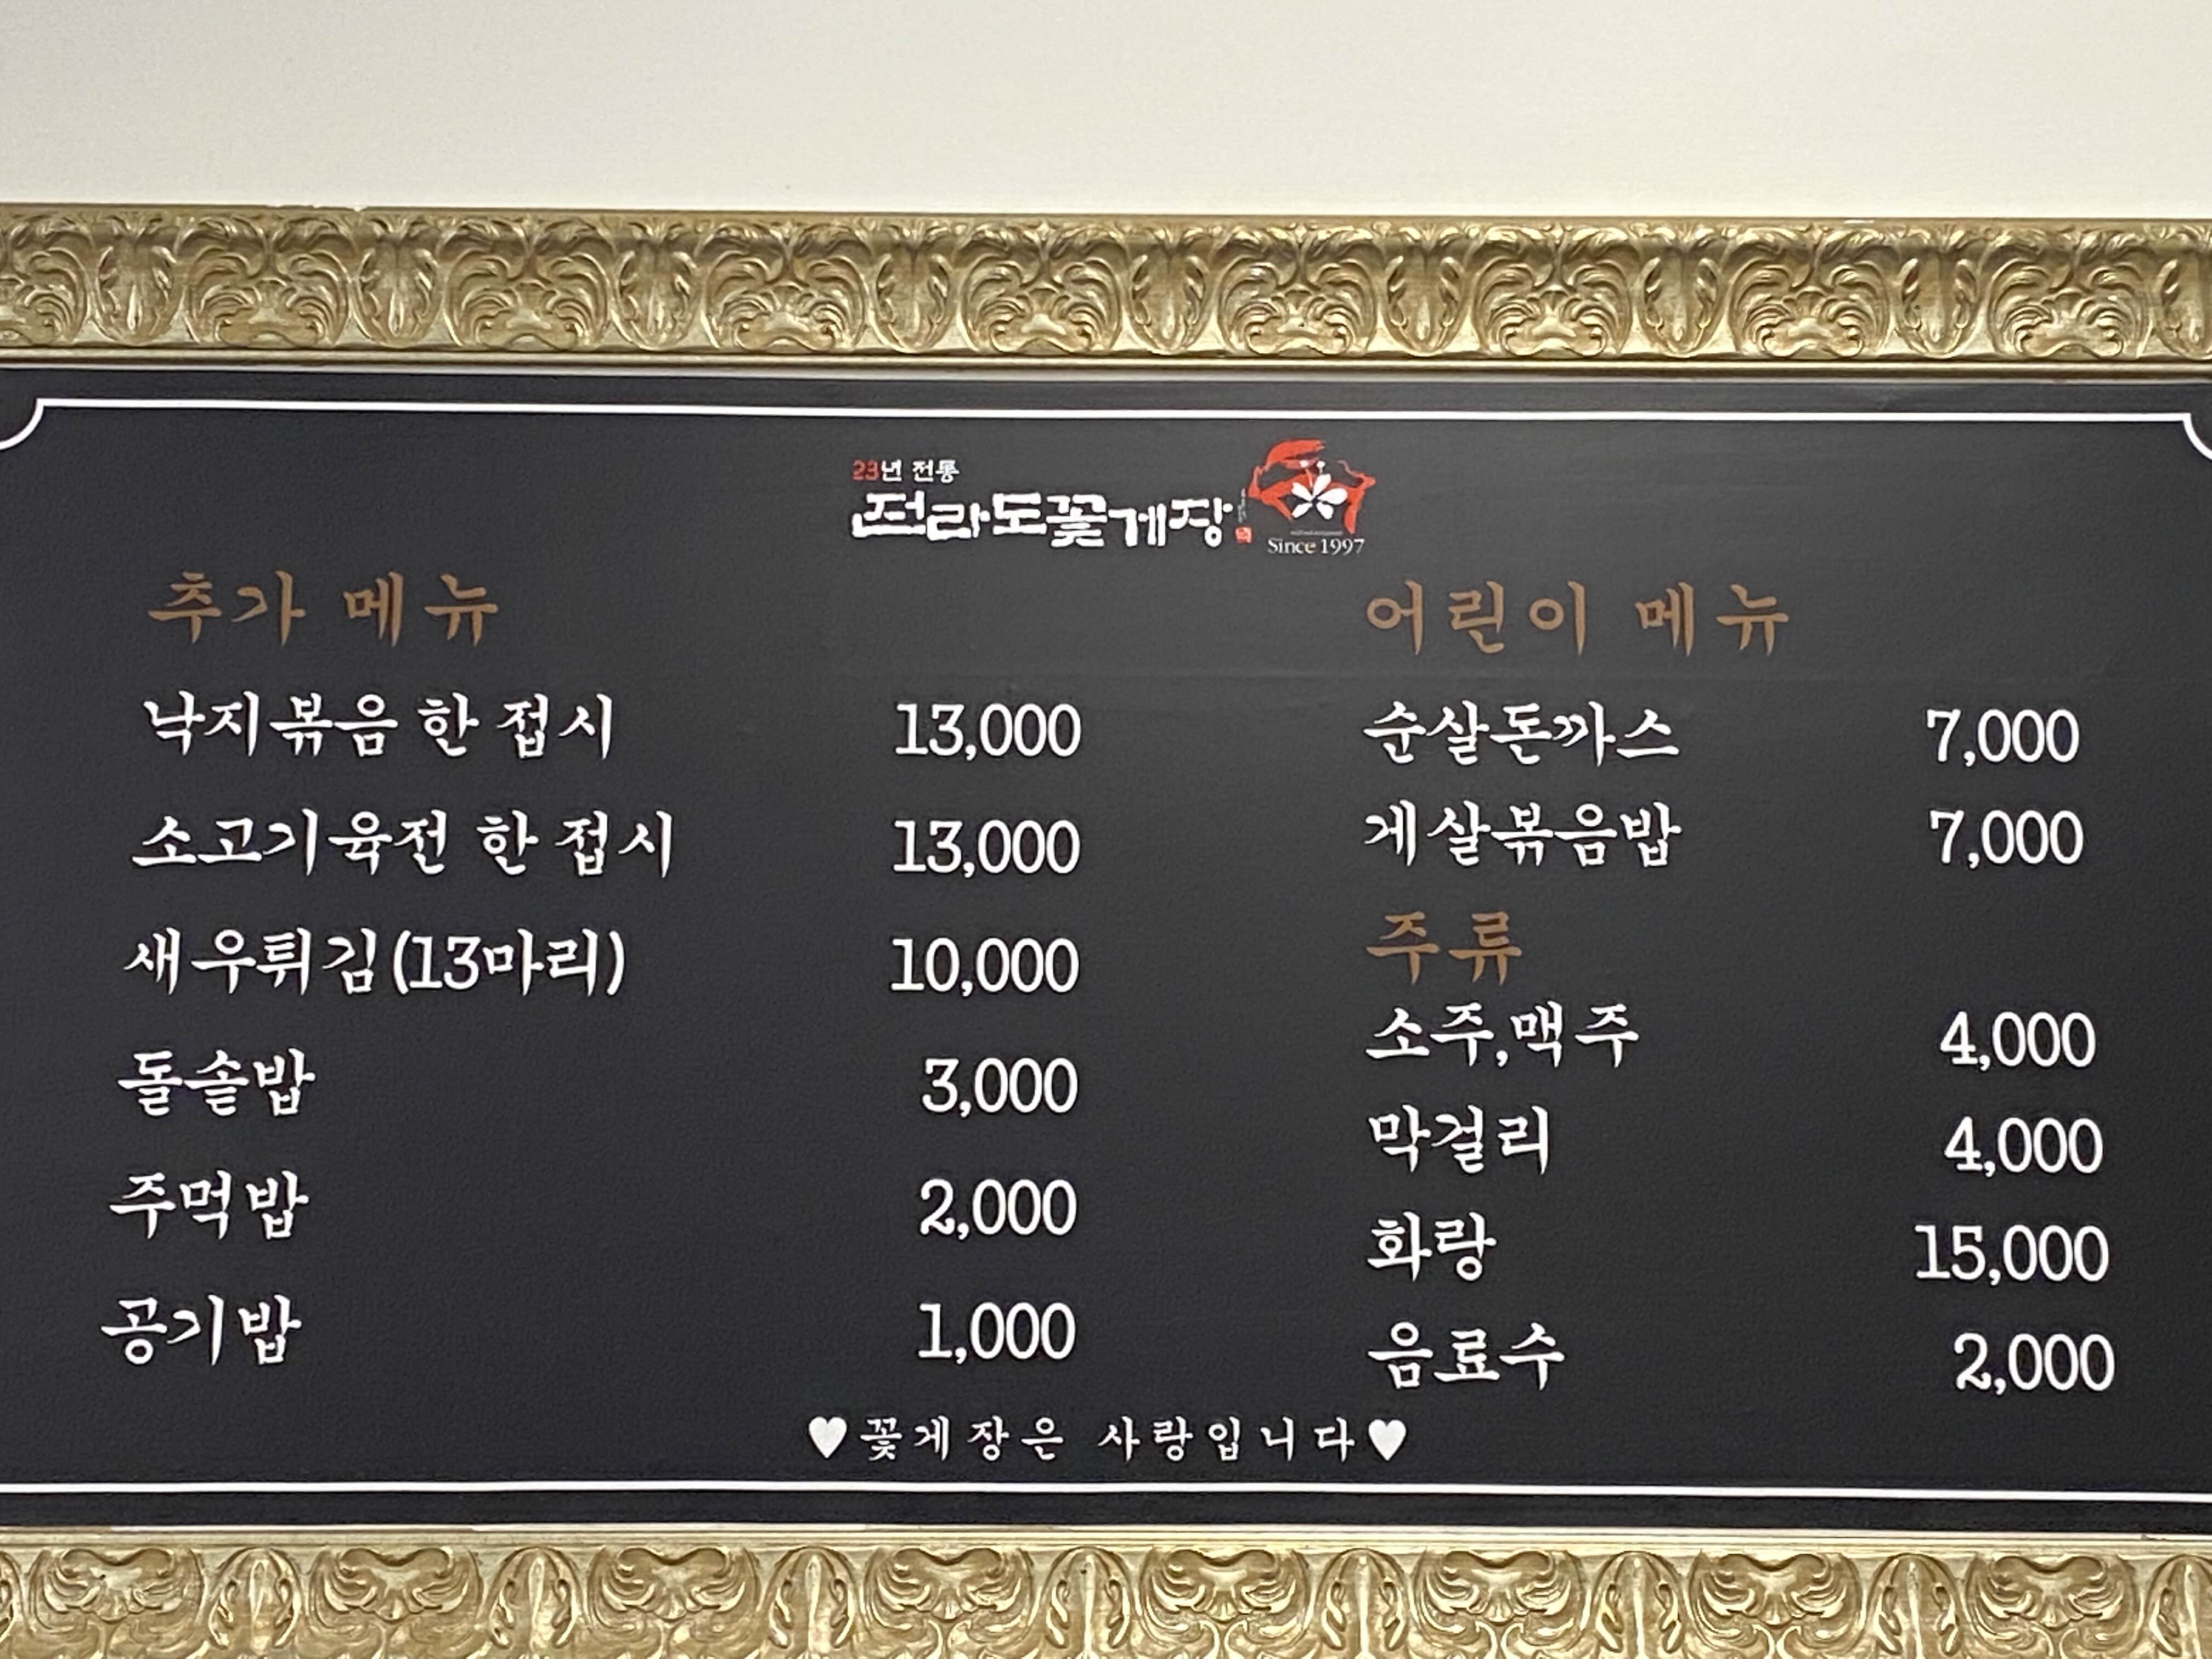 23년 전통
전라도꽃게장
Since 1997
추가 메뉴
낙지볶음 한 접시 13,000
소고기육전 한 접시 13,000
새우튀김(13마리) 10,000
돌솥밥 3,000
주먹밥 2,000
공기밥 1,000
어린이 메뉴
순살돈까스 7,000
게살볶음밥 7,000
주류
소주,맥주 4,000
막걸리 4,000
화랑 15,000
음료수 2,000
♥꽃게장은 사랑입니다♥